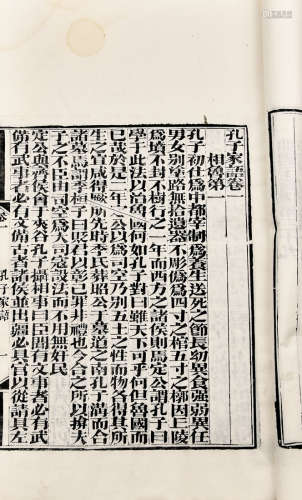 孔子家語卷一
相魯第一
孔子初仕爲中都宰制爲養生送死之節長幼異食强弱異任
男女別塗路無拾遺器不彫僞爲四寸之棺五寸之槨因丘陵
爲墳不封不樹行之一年而西方之諸侯則焉定公謂孔子曰
學子此法以治魯國何如孔子對曰雖天下可乎何但魯國而
已哉於是二年定公以爲司空乃別五土之性而物各得其所
生之宜咸得厥所先時季氏葬昭公于墓道之南孔子溝而合
諸墓焉謂季桓子曰貶君以彰己罪非禮也今合之所以揜夫
子之不臣由司空爲大司寇設法而不用無奸民
定公與齊侯會于夾谷孔子攝相事曰臣聞有文事者必有武
備有武事者必有文備古者諸侯並出疆必具官以從請具左
卷一
孔子家語